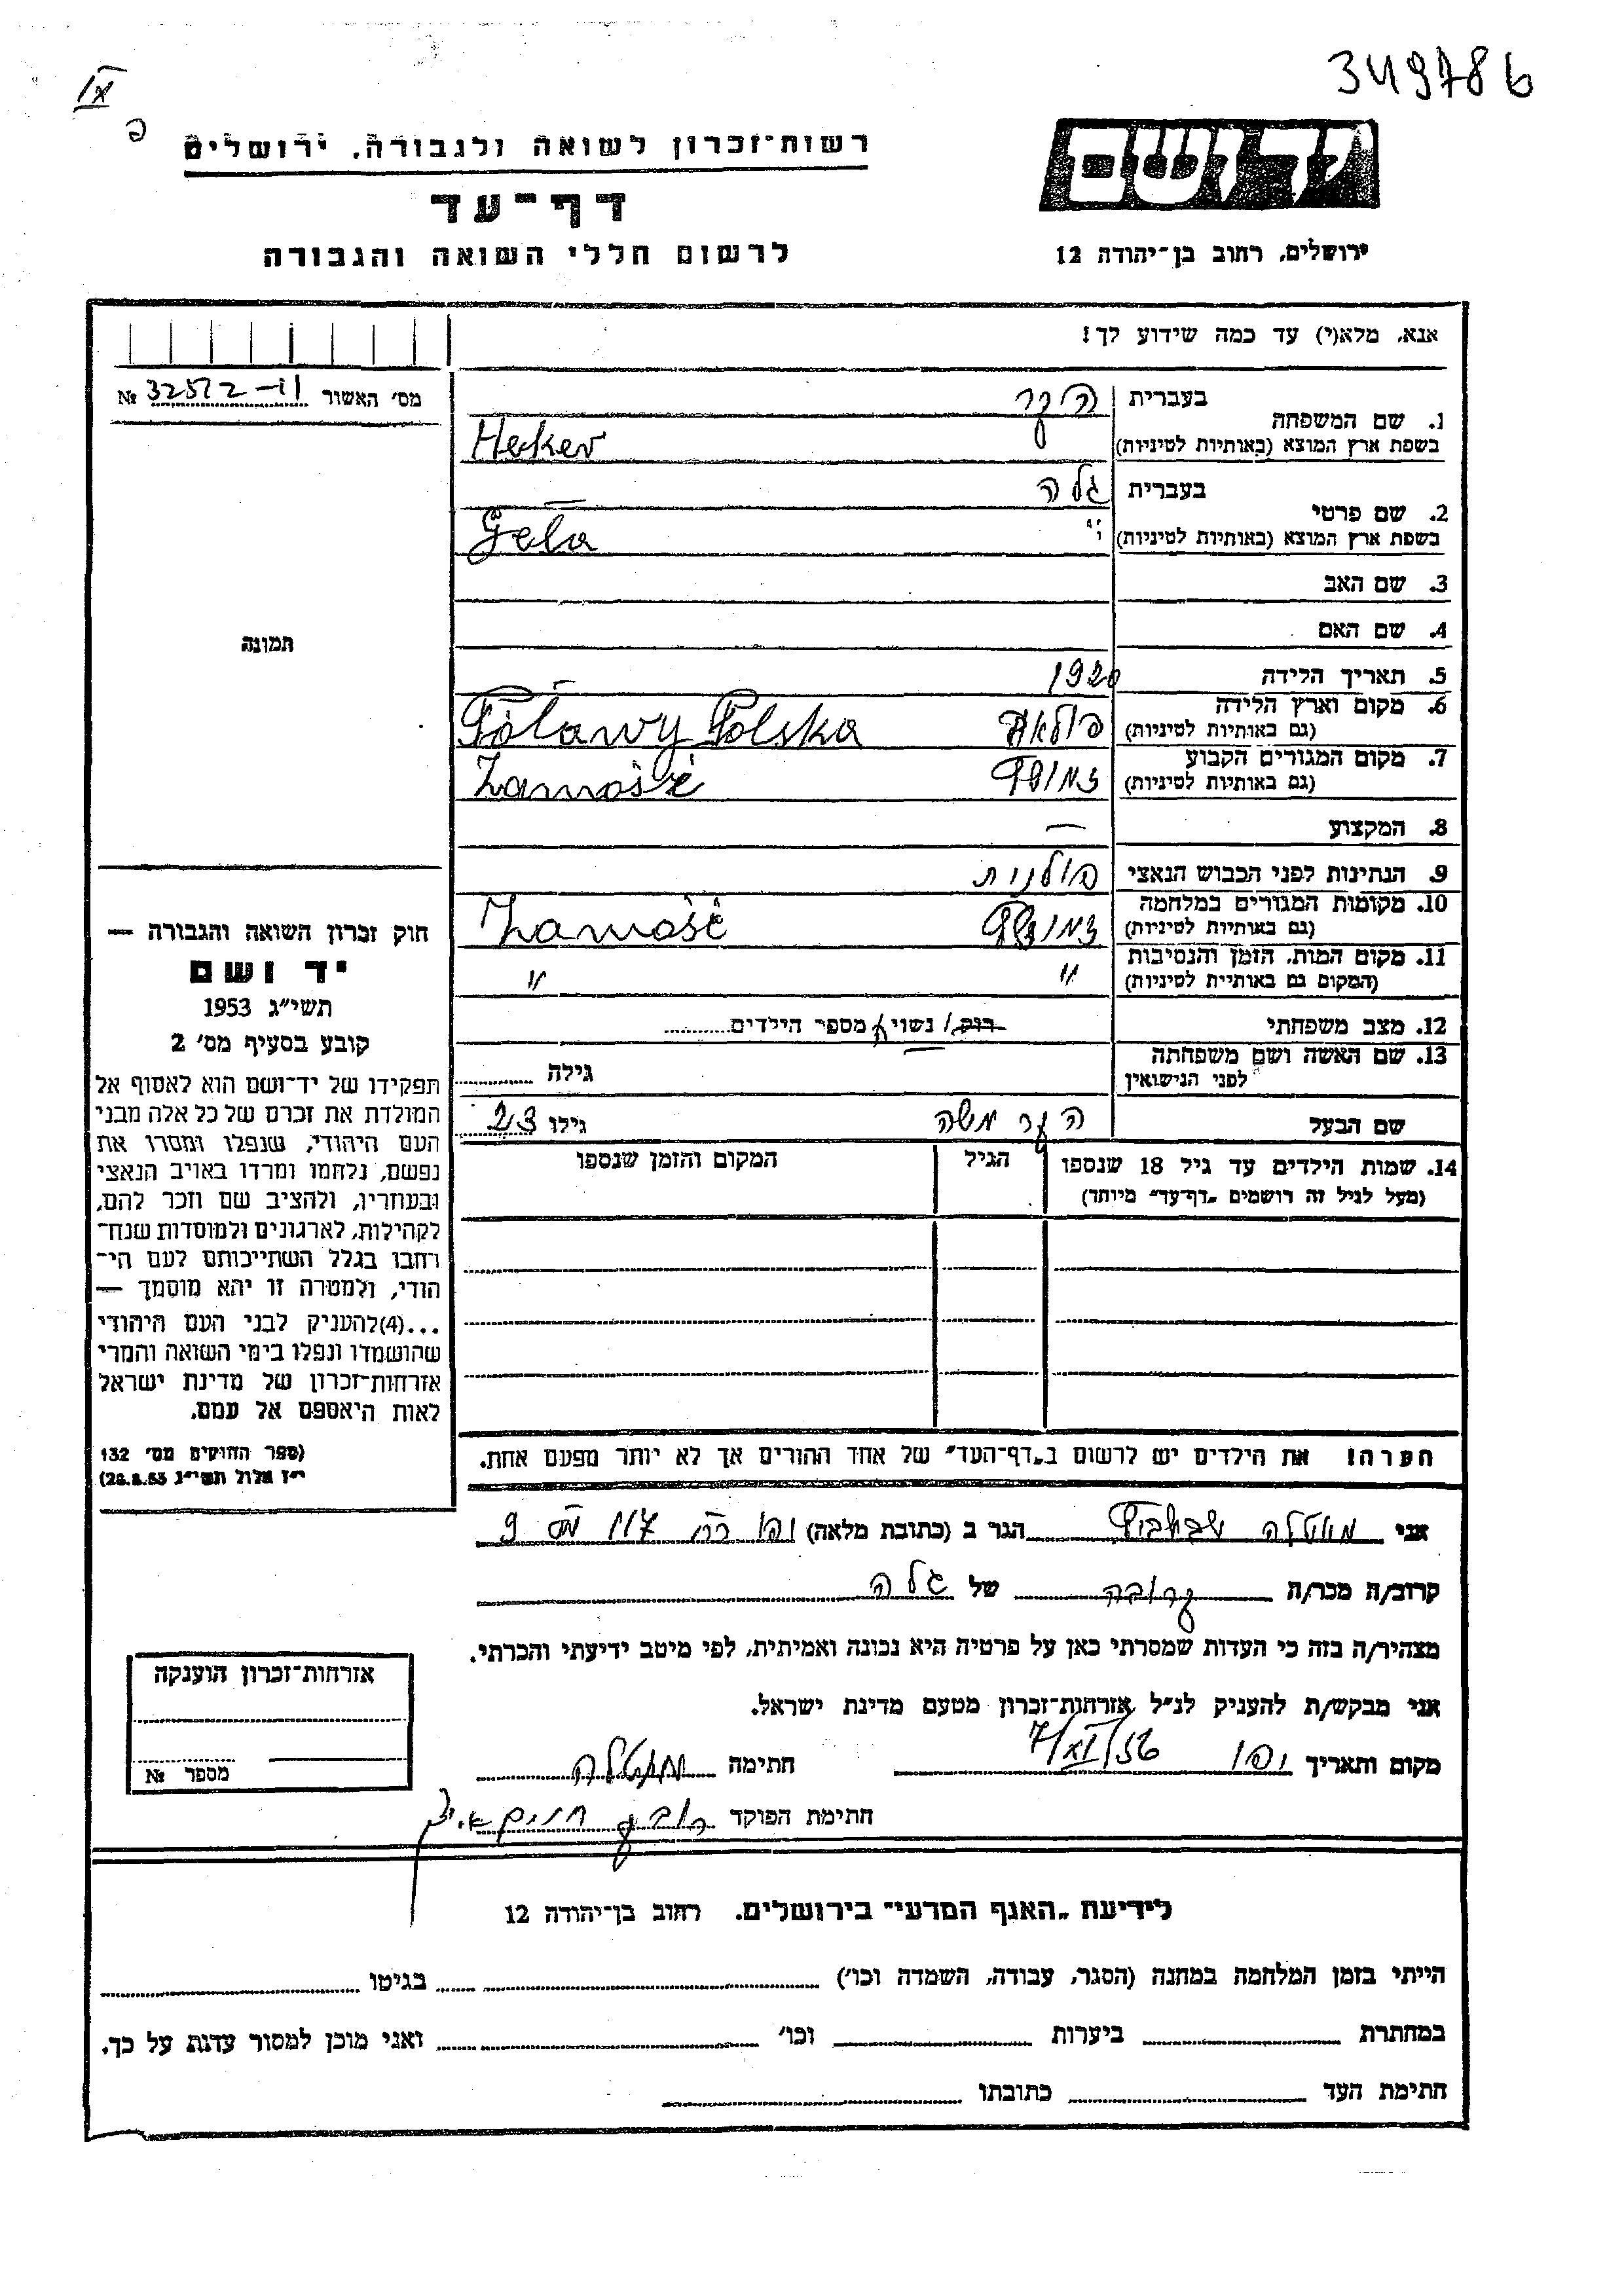 349786
IX
רשות־זכרון לשואה ולגבורה, ירושלים
יד ושם
דף־עד
לרשום חללי השואה והגבורה
ירושלים, רחוב בן־יהודה 12
אנא, מלא(י) עד כמה שידוע לך!
מס' האשור 32572-II №
1. שם המשפחה בעברית הקר
בשפת ארץ המוצא (באותיות לטיניות) Heker
2. שם פרטי בעברית גלה
בשפת ארץ המוצא (באותיות לטיניות) Gela
3. שם האב
4. שם האם
תמונה
5. תאריך הלידה 1920
6. מקום וארץ הלידה
(גם באותיות לטיניות) Polska
7. מקום המגורים הקבוע
(גם באותיות לטיניות) Zamość
8. המקצוע —
9. הנתינות לפני הכבוש הנאצי פולנית
10. מקומות המגורים במלחמה
(גם באותיות לטיניות) Zamość
11. מקום המות, הזמן והנסיבות
(המקום גם באותיות לטיניות) " "
12. מצב משפחתי רוק/ נשוי/ מספר הילדים
13. שם האשה ושם משפחתה
לפני הנישואין גילה
שם הבעל הקר משה גילו 23
14. שמות הילדים עד גיל 18 שנספו הגיל המקום והזמן שנספו
(מעל לגיל זה רושמים „דף־עד" מיוחד)
חוק זכרון השואה והגבורה —
יד ושם
תשי"ג 1953
קובע בסעיף מס' 2
תפקידו של יד־ושם הוא לאסוף אל
המולדת את זכרם של כל אלה מבני
העם היהודי, שנפלו ומסרו את
נפשם, נלחמו ומרדו באויב הנאצי
ובעוזריו, ולהציב שם וזכר להם,
לקהילות, לארגונים ולמוסדות שנח־
רבו בגלל השתייכותם לעם הי־
הודי, ולמטרה זו יהא מוסמך —
...(4)להעניק לבני העם היהודי
שהושמדו ונפלו בימי השואה והמרי
אזרחות־זכרון של מדינת ישראל
לאות היאספם אל עמם.
(ספר החוקים מס' 132
י"ז אלול תשי"ג 28.8.53)
הערה! את הילדים יש לרשום ב„דף־העד" של אחד ההורים אך לא יותר מפעם אחת.
אני הגר ב (כתובת מלאה)
קרוב/ה מכר/ה קרובה של גלה
מצהיר/ה בזה כי העדות שמסרתי כאן על פרטיה היא נכונה ואמיתית, לפי מיטב ידיעתי והכרתי.
אני מבקש/ת להעניק לנ"ל אזרחות־זכרון מטעם מדינת ישראל.
מקום ותאריך 7/XI/56 חתימה
חתימת הפוקד
אזרחות־זכרון הוענקה
מספר №
לידיעת „האגף המדעי" בירושלים. רחוב בן־יהודה 12
הייתי בזמן המלחמה במחנה (הסגר, עבודה, השמדה וכו') בגיטו
במחתרת ביערות וכו' ואני מוכן למסור עדות על כך.
חתימת העד כתובתו